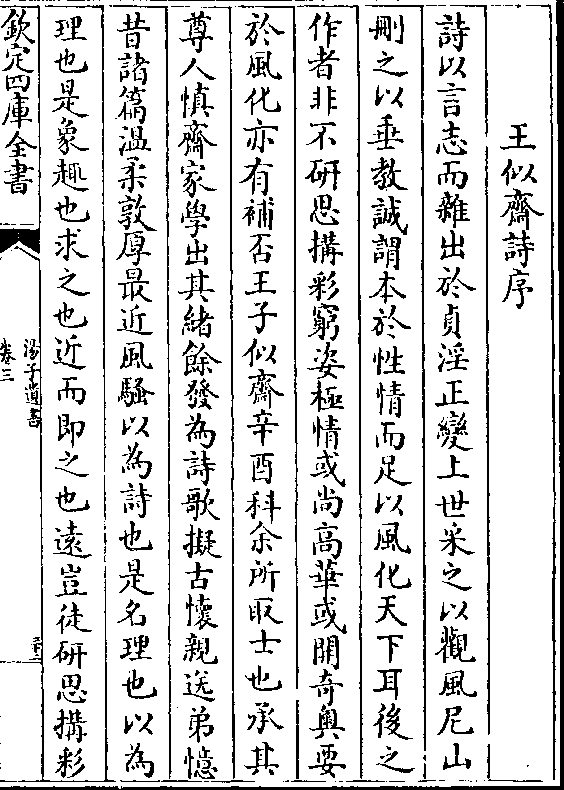 王似齋詩序
詩以言志而雜出於貞淫正變上世采之以觀風尼山
刪之以垂教誠謂本於性情而足以風化天下耳後之
作者非不研思搆彩窮姿極情或尚高華或開奇奥要
於風化亦有補否王子似齋辛酉科余所取士也承其
尊人慎齋家學出其緒餘發為詩歌擬古懷親送弟憶
昔諸篇温柔敦厚最近風騷以為詩也是名理也以為
理也是象趣也求之也近而即之也遠豈徒研思搆彩
欽定四庫全書
湯子遺書
卷三